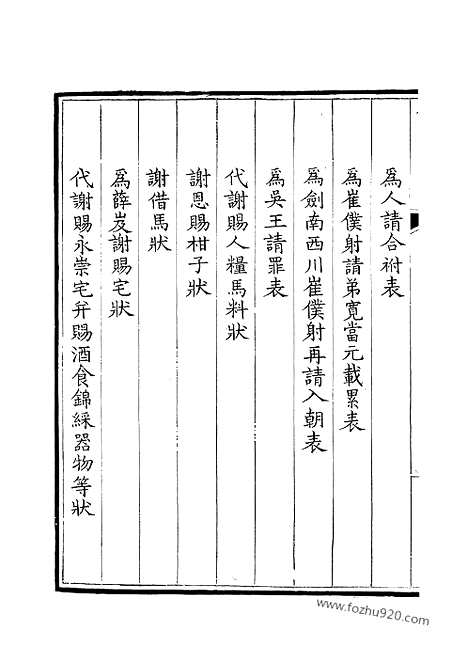 爲人請合祔表
爲崔僕射請弟寛當元載累表
爲劍南西川崔僕射再請入朝表
爲吳王請罪表
代謝賜人糧馬料狀
謝恩賜柑子狀
謝借馬狀
爲薛岌謝賜宅狀
代謝賜永崇宅并賜酒食錦綵器物等狀
www.fozhu920.com